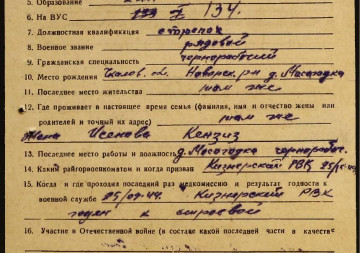 5. Образование
6. На ВУС 134.
7. Должностная квалификация стрелок
8. Военное звание рядовой
9. Гражданская специальность чернорабочий
10. Место рождения Чкалов. обл. Новорск. р-н д. Масагадка
11. Последнее место жительства там же
12. Где проживает в настоящее время семья (фамилия, имя и отчество жены или
родителей и точный их адрес) там же
жена Кензиз
13. Последнее место работы и должность д. Масагадка чернорабоч.
14. Каким райгорвоенкоматом и когда призван Кизнерский РВК
15. Когда и где проходил последний раз медкомиссию и результат годности к
военной службе 25/09-44. Кизнерский РВК
годен к строевой
16. Участие в Отечественной войне (в составе какой последней части в качестве